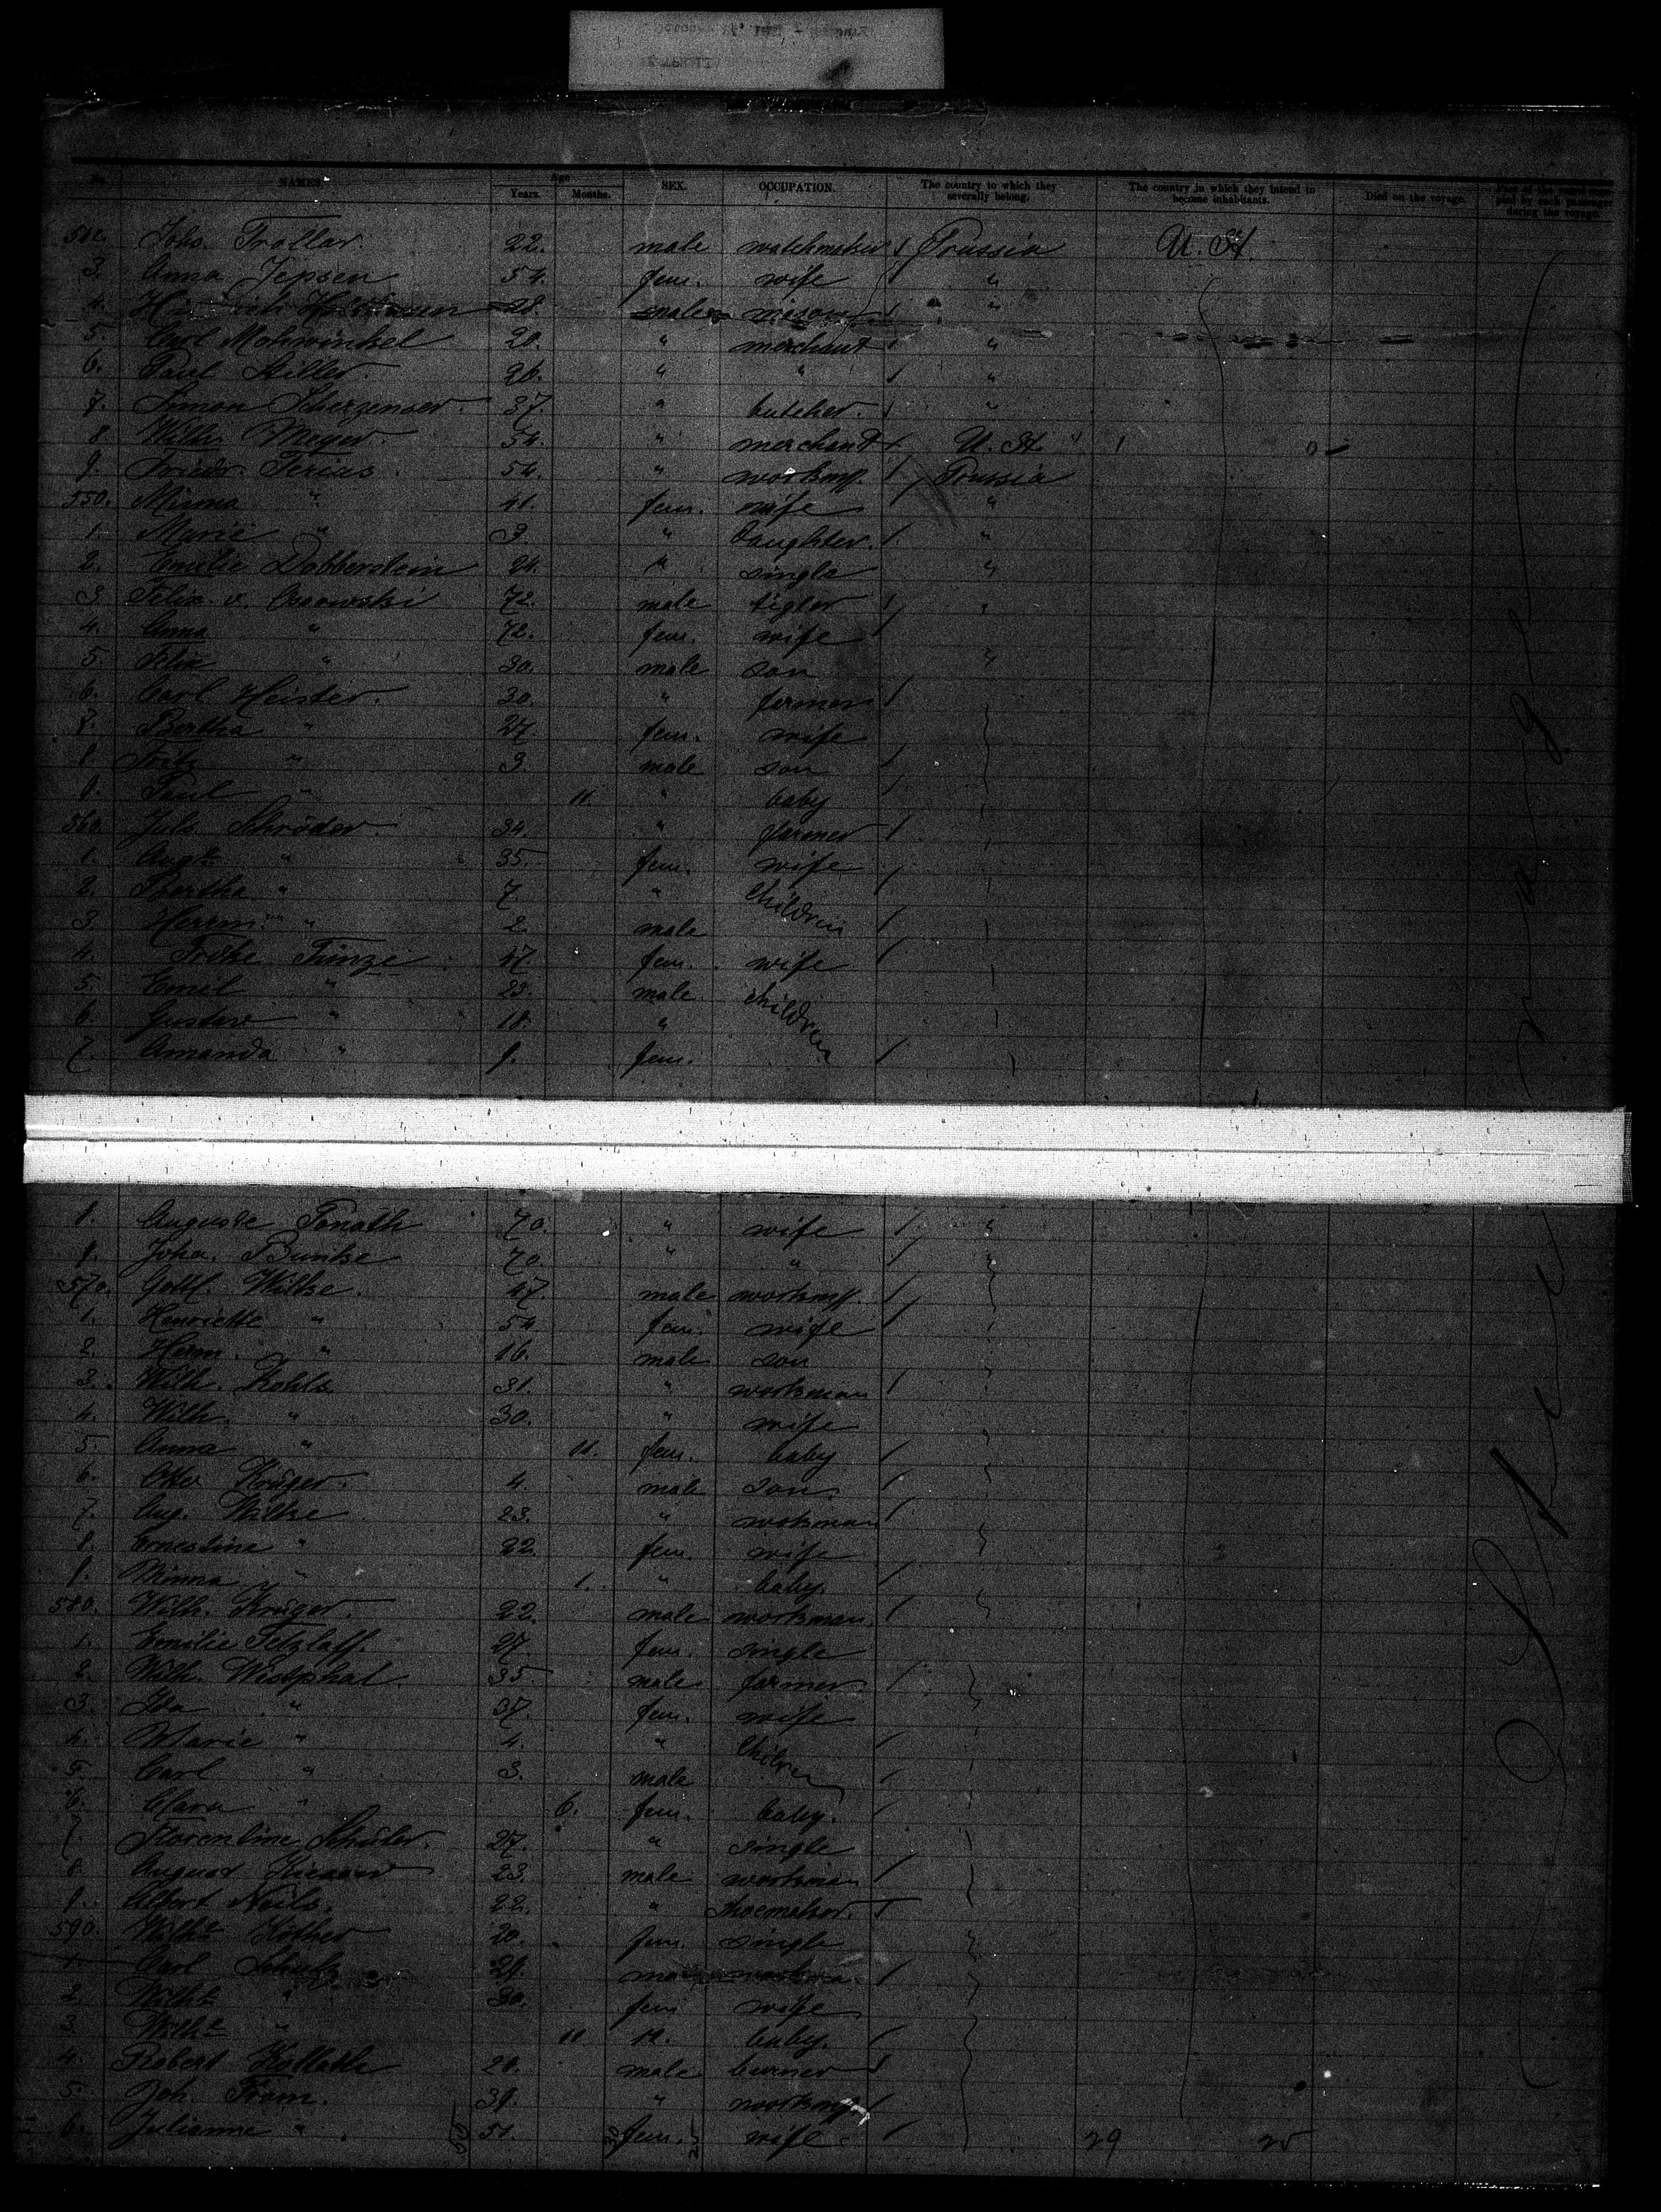 No. NAMES. Age Years. Months. SEX. OCCUPATION. The country to which they severally belong. The country in which they intend to become inhabitants. Died on the voyage. Part of the vessel occupied by each passenger during the voyage.
542. Johs. Trollar. 22. male watchmaker Prussia U. St.
3. Anna Jepsen 54. fem. wife "
4. 28. male mason "
5. Carl Mohrwinkel 20. " merchant "
6. Paul Stiller. 26. " " "
7. Simon Scherzenser. 37. " butcher. "
8 Wilh. Meyer. 54. " merchant U. St.
9. Friedr. Terius. 54. " workm. Prussia
550. Minna " 41. fem. wife "
1. Marie " 3. " daughter. "
2. Emilie Dobberstein 24. " single "
3 Felix v. 72. male "
4. Anna " 72. fem. wife
5. Felix " 30. male son "
6. Carl Heister. 30. " farmer
7. Bertha " 27. fem. wife
8. Fritz " 3. male son
9. Paul " 11. " baby
560 Juls. Schröder. 34. " farmer
1. Augte " 35. fem. wife
2. Bertha " 7. " children
3. Herrm. " 2. male
4. Frike Tünze 47. fem. wife
5. Emil " 23. male children
6. Gustav " 18. "
7. Amanda " 9. fem.
8. Auguste Tonath 70. " wife "
9. Joha. Buntke 70 " " "
570. Gottl. Wilke. 47. male workm.
1. Henriette " 54 fem. wife
2. Herm. " 16. male son
3. Wilh. Kohls 31. " workman
4. Wilh. " 30. " wife
5. Anna " 11. fem. baby
6. Otto Krüger. 4. male son.
7. Aug. Wilke 23. " workman
8. Ernestine " 22. fem. wife
9. Minna " 1. " baby.
580. Wilh. Krüger. 22. male workman.
1. Emilie Tetzlaff. 27. fem. single
2. Wilh. Westphal. 35 male farmer
3. Ida " 37. fem. wife
4. Marie " 4. " children
5. Carl " 3. male
6. Clara " 6. fem. baby.
7. Florentine Schüler. 27. " single
8. August 23. male workman
9. Albert Neils. 22. " shoemaker.
590. Wilhe Köther 20. fem. single
1. Carl Schulz 29.
2. Wilhe " 30. fem wife
3. Wilhe " 11 " baby.
4. Robert Kollath 28. male
5. Joh. Fram. 39. " workm.
6. Julianne " 51. fem. wife
29 25
Steerage